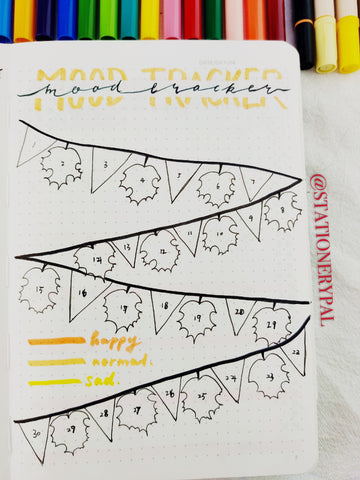 MOOD TRACKER
mood tracker
1 2 3 4 5 6 7
14 13 12 11 10 9 8
15 16 17 18 19 20 29
happy
normal.
sad.
30 29 28 27 26 25 24 23 22
@STATIONERYPAL